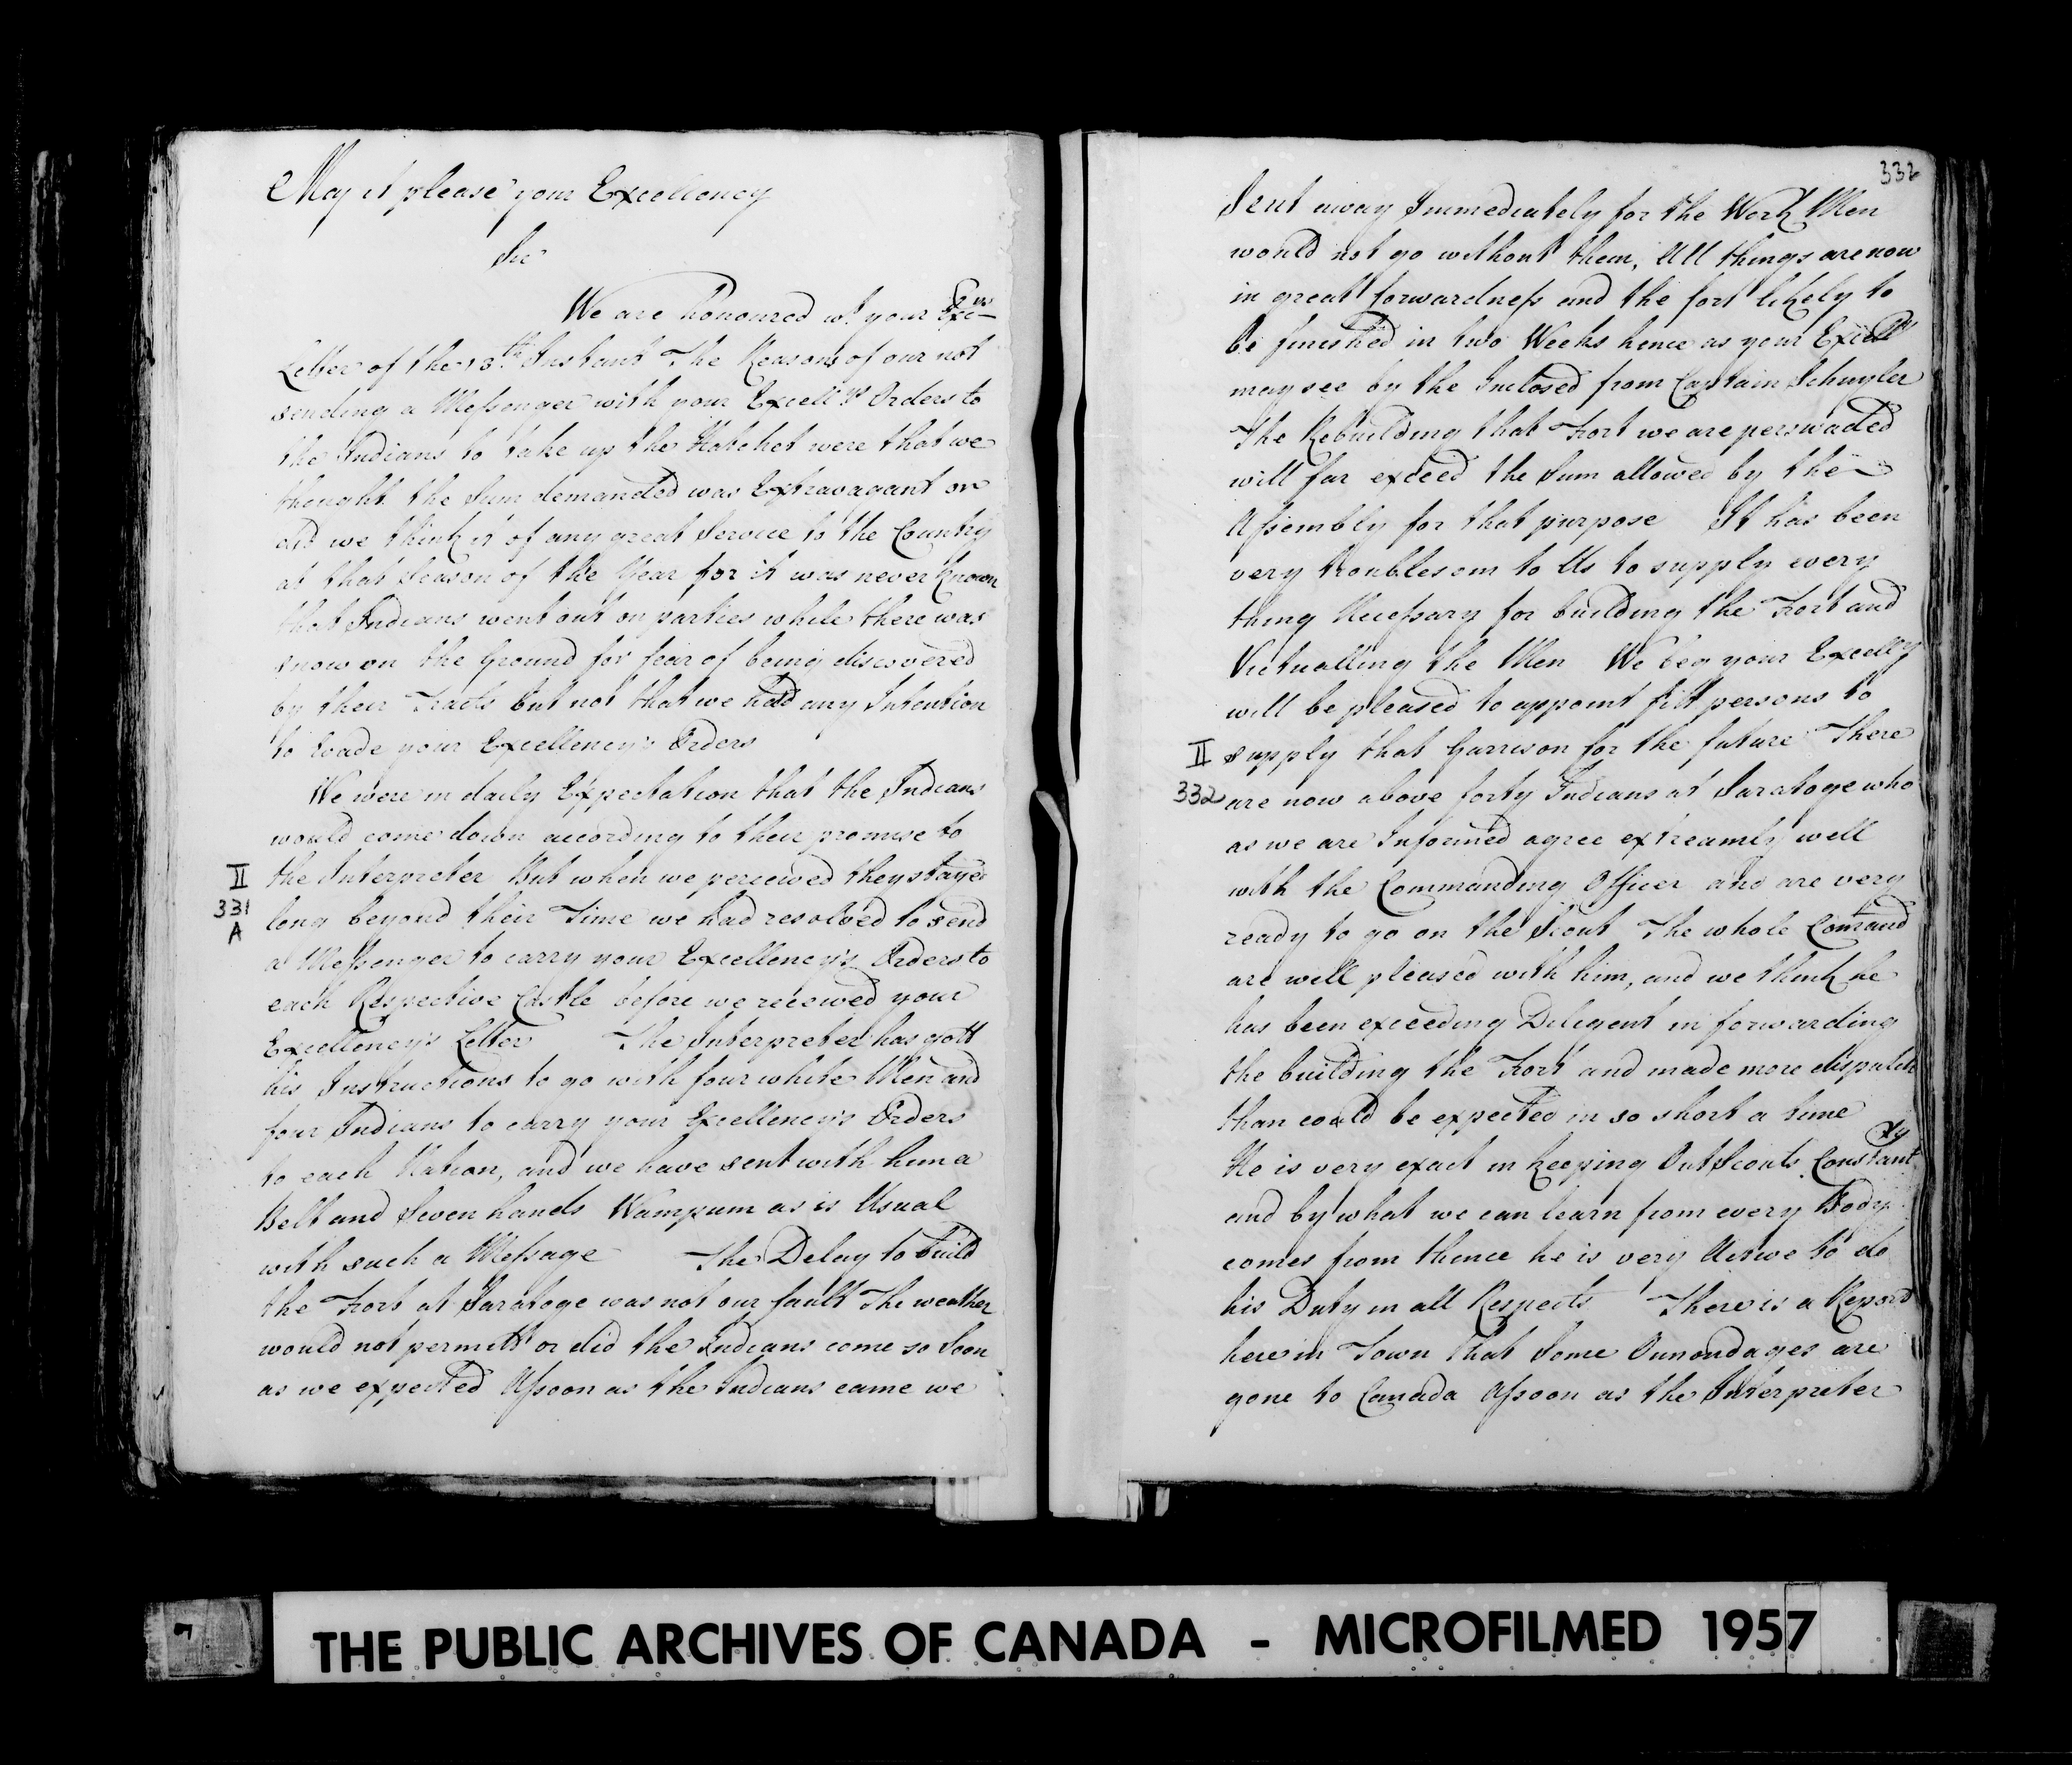 May it please your Excellency
Sir
We are honoured wt. your Excys
Letter of the 13th. Instant The Reasons of our not
sending a Messenger with your Excellys Orders to
the Indians to take up the Hatchet were that we
thought the Sum demanded was Extravagant or
did we think it of any great Service to the Country
at that Season of the Year for it was never known
that Indians went out on parties while there was
snow on the Ground for fear of being discovered
by their Tracts but not that we had any Intention
to Evade your Excellency's Orders
We were in daily Expectation that the Indians
would come down according to their promise to
the Interpreter But when we perceived they stayed
long beyond their Time we had resolved to send
a Messenger to carry your Excellency's Orders to
each Respective Castle before we received your
Excellency's Letter The Interpreter has gott
his Instructions to go with four white Men and
four Indians to carry your Excellency's Orders
to each Nation, and we have sent with him a
Belt and Seven hands Wampum as is Usual
with such a Message The Delay to build
the Fort at Saratoge was not our fault The weather
would not permitt or did the Indians come so Soon
as we expected Assoon as the Indians came we
II
331
A
332
Sent away Immediately for the Work Men
would not go without them, All things are now
in great forwardness and the fort likely to
be finished in two Weeks hence as your Excelly
may see by the Inclosed from Captain Schuyler
The Rebuilding that Fort we are perswaded
will far exceed the Sum allowed by the
Assembly for that purpose It has been
very troublesom to Us to supply every
thing Necessary for building the Fort and
Victualling the Men We beg your Excelly
will be pleased to appoint fitt persons to
supply that Garrison for the future There
are now above forty Indians at Saratoge who
as we are Informed agree extreamly well
with the Commanding Officer and are very
ready to go on the Scout The whole Comand
are well pleased with him, and we think he
has been exceeding Diligent in forwarding
the building the Fort and made more dispatch
than could be expected in so short a time
He is very exact in keeping Out Scouts Constantly
and by what we can learn from every Body
comes from thence he is very Active to do
his Duty in all Respects There is a Report
here in Town that Some Onnondages are
gone to Canada Assoon as the Interpreter
II
332
THE PUBLIC ARCHIVES OF CANADA - MICROFILMED 1957